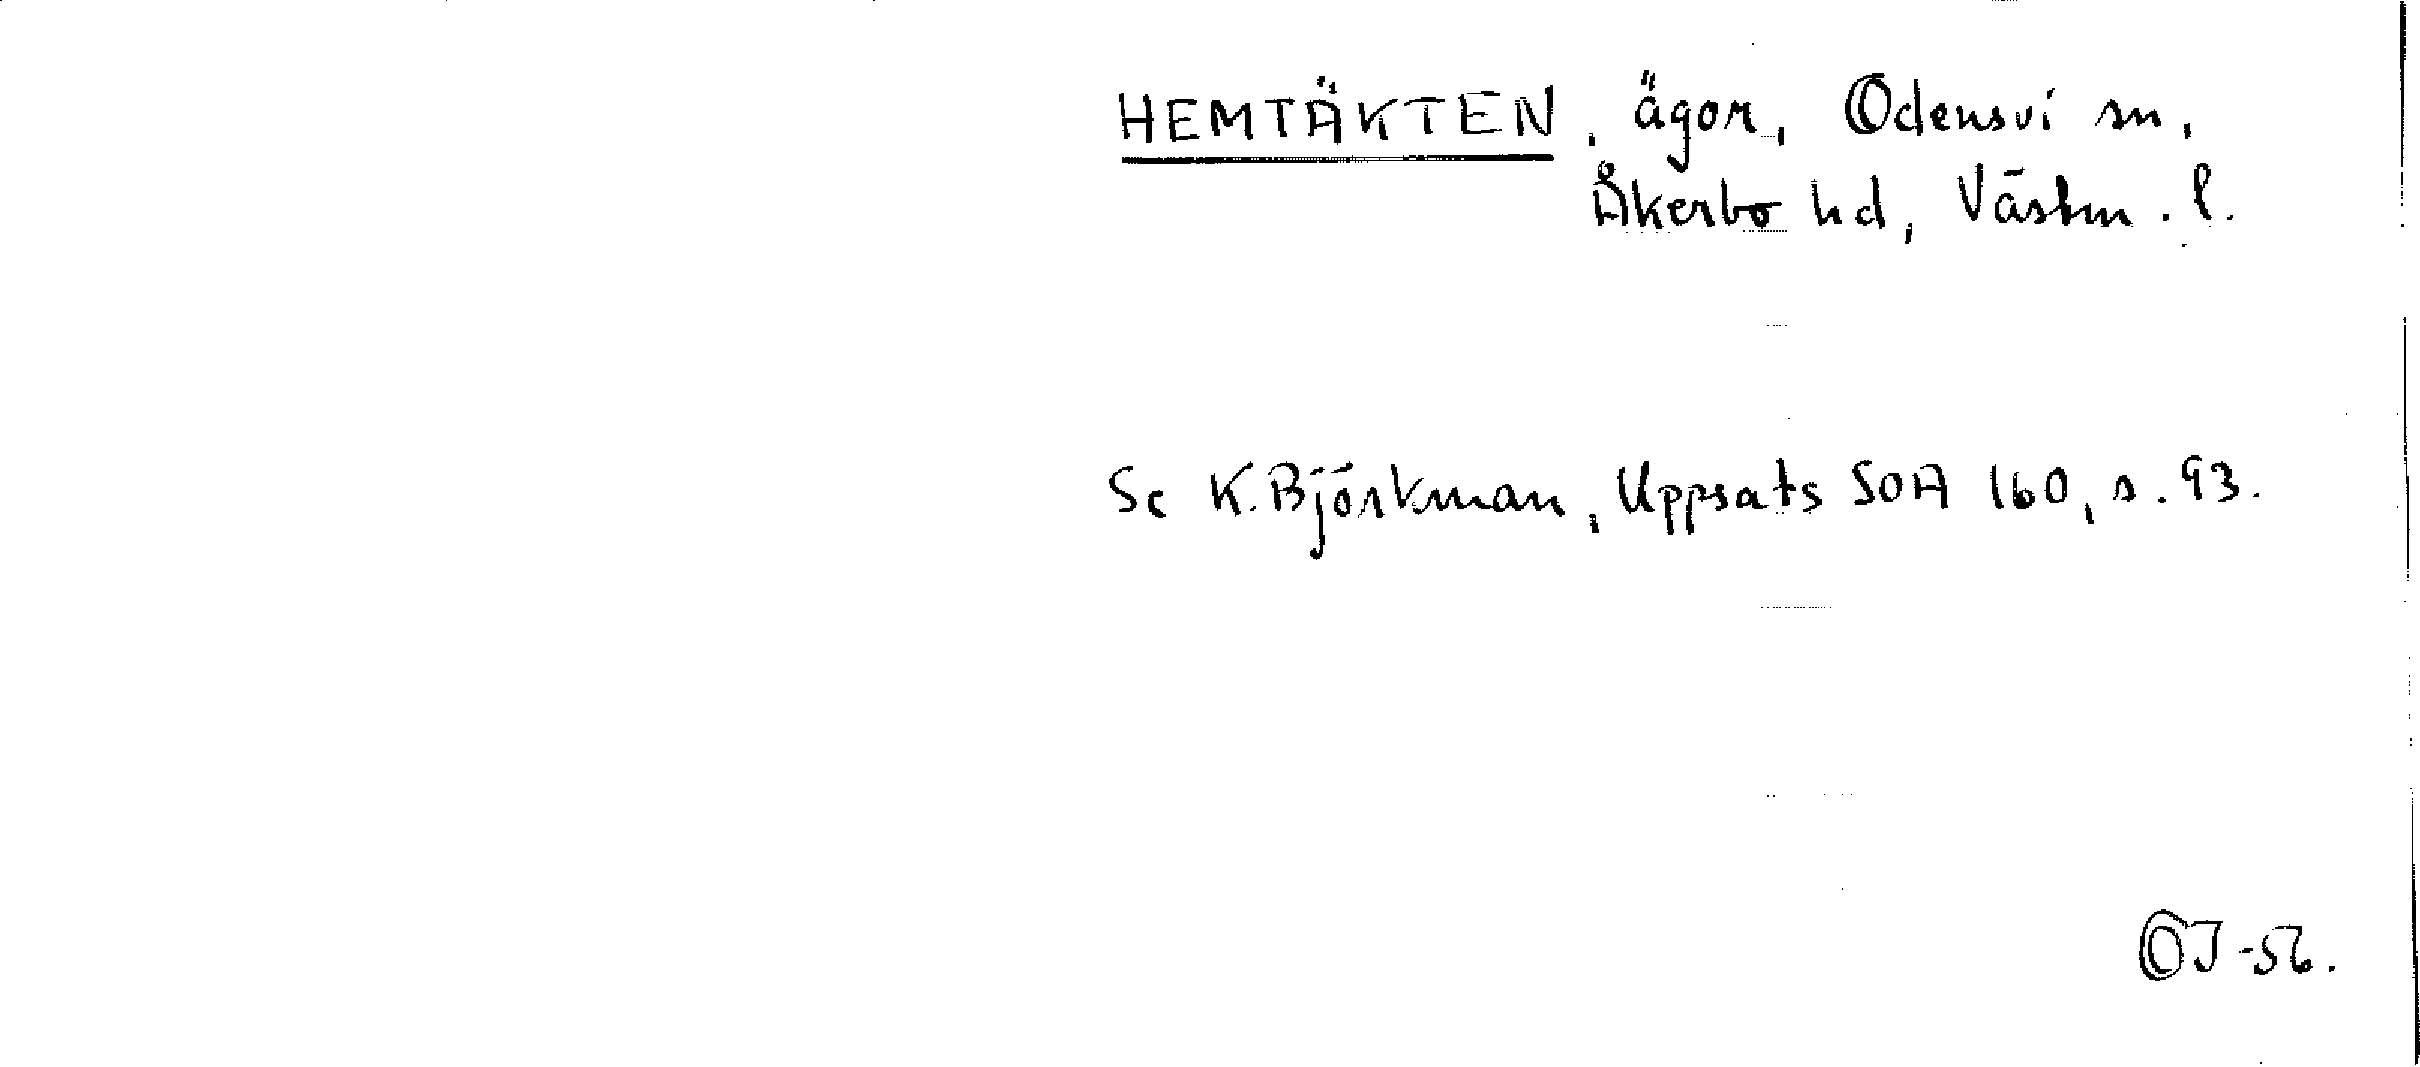 HEMTÄKTEN, ägor, Odensvi sn,
Åkerbo hd, Västm. l.
Se K. Björkman, Uppsats SOA 160, s. 93.
OJ -56.